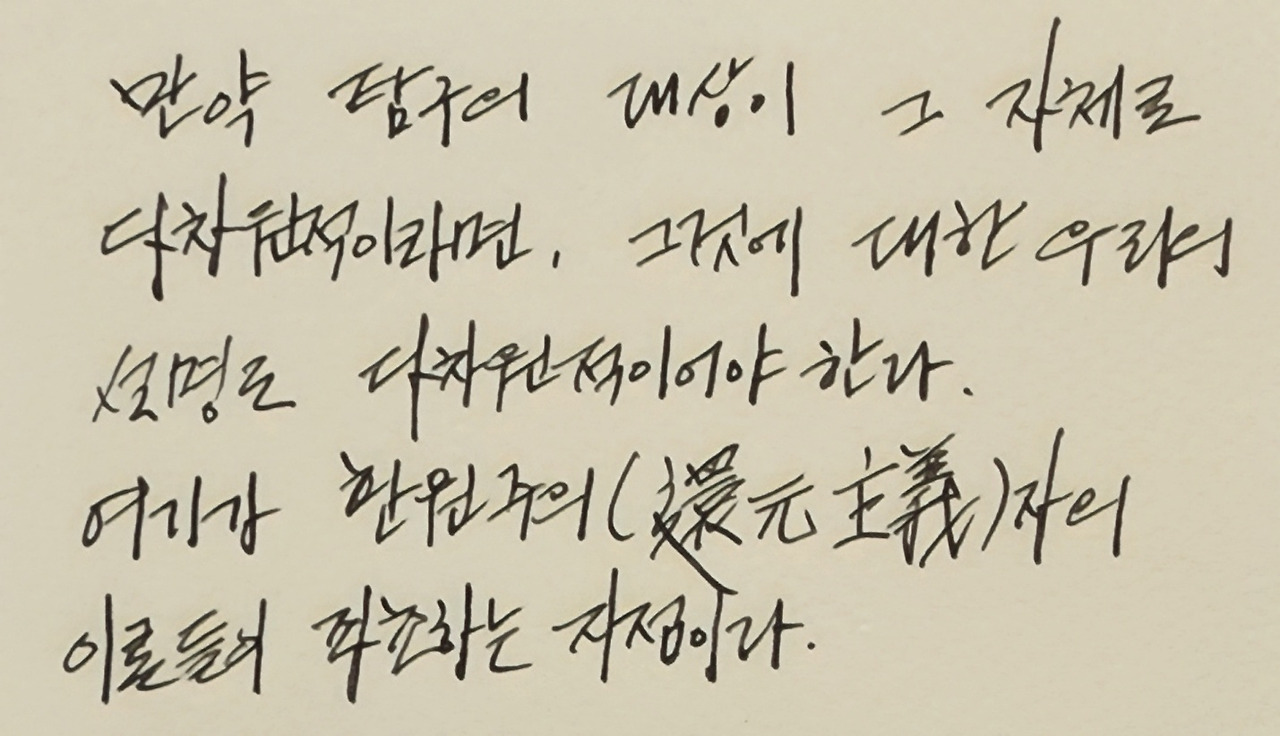 만약 탐구의 대상이 그 자체로
다차원적이라면, 그것에 대한 우리의
설명도 다차원적이어야 한다.
여기가 환원주의(還元主義)자의
이론들이 좌초하는 지점이다.